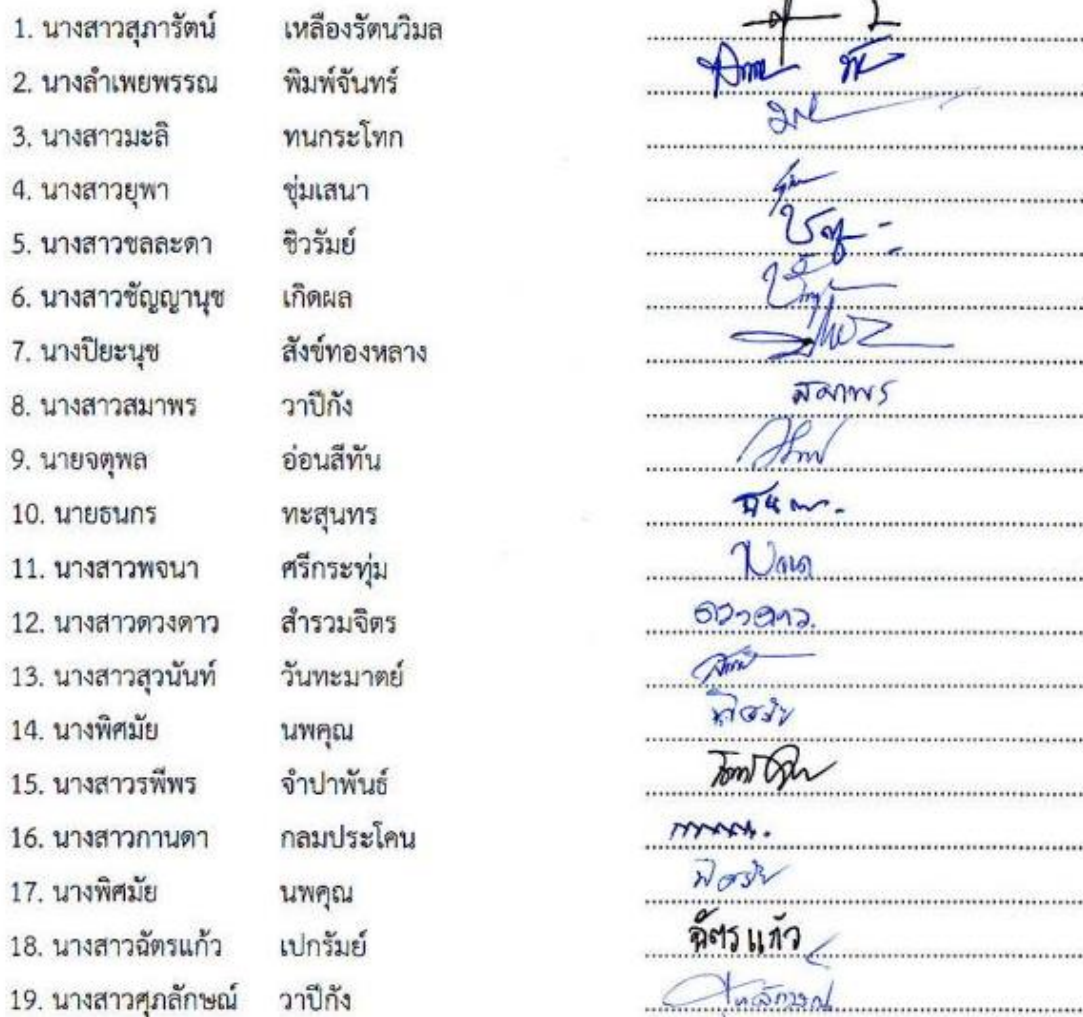 1. นางสาวสุภารัตน์ เหลืองรัตนวิมล
2. นางลำเพยพรรณ พิมพ์จันทร์
3. นางสาวมะลิ ทนกระโทก
4. นางสาวยุพา ชุ่มเสนา
5. นางสาวชลละดา ชิวรัมย์
6. นางสาวชัญญานุช เกิดผล
7. นางปิยะนุช สังข์ทองหลาง
8. นางสาวสมาพร วาปีกัง สมาพร
9. นายจตุพล อ่อนสีทัน
10. นายธนกร ทะสุนทร
11. นางสาวพจนา ศรีกระทุ่ม
12. นางสาวดวงดาว สำรวมจิตร ดวงดาว.
13. นางสาวสุวนันท์ วันทะมาตย์
14. นางพิศมัย นพคุณ พิศมัย
15. นางสาวรพีพร จำปาพันธ์
16. นางสาวกานดา กลมประโคน
17. นางพิศมัย นพคุณ พิศมัย
18. นางสาวฉัตรแก้ว เปกรัมย์ ฉัตรแก้ว
19. นางสาวศุภลักษณ์ วาปีกัง